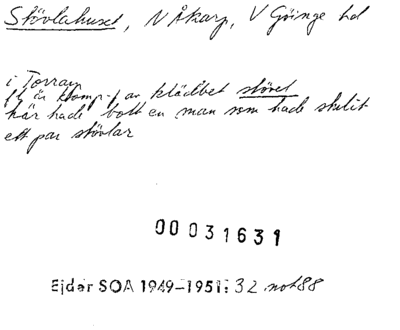 Stövlahuset, N Åkarp, V Göinge hd
i Torran
fl är komp-f av klädbet stövel
här hade bott en man som hade stulit
ett par stövlar
00031631
Ejder SOA 1949-1951: 32 not 88